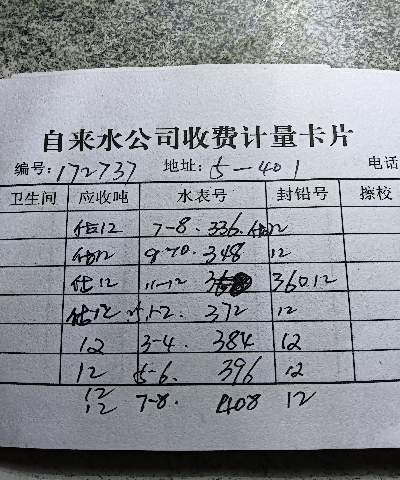 自来水公司收费计量卡片
编号:172737 地址:5-401 电话
卫生间 应收吨 水表号 封铅号 擦校
估12 7-8. 336. 估12
估12 9-10. 348 12
估12 11-12 360.12
估12 1-2. 372 12
12 3-4. 384 12
12 5-6. 396 12
12
12 7-8. 408 12